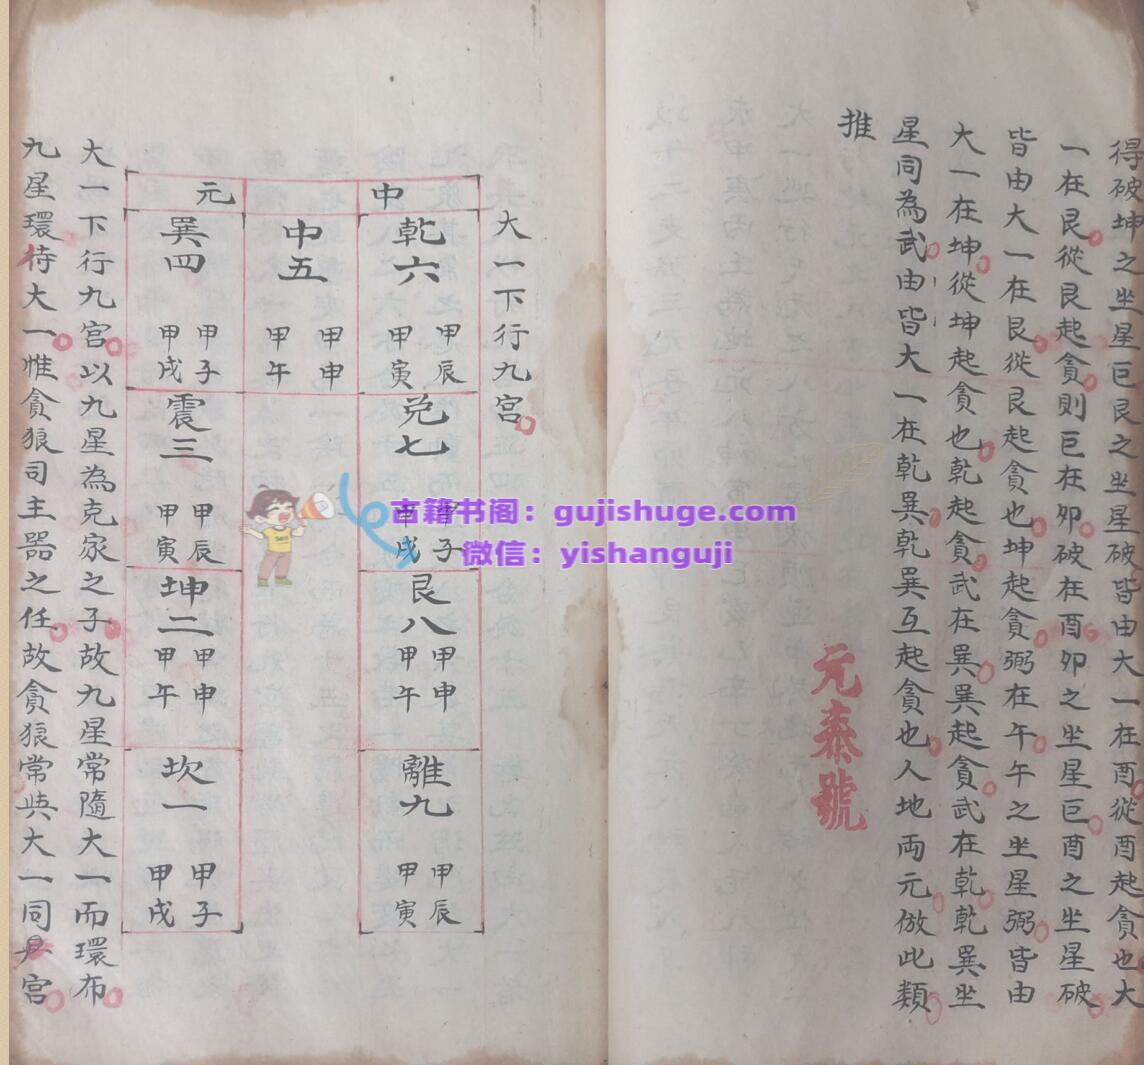 得破坤之坐星巨艮之坐星破皆由大一在酉從酉起貪也大
一在艮從艮起貪則巨在卯破在酉卯之坐星巨酉之坐星破
皆由大一在艮從艮起貪也坤起貪弼在午午之坐星弼皆由
大一在坤從坤起貪也乾起貪武在巽巽起貪武在乾乾巽坐
星同為武由皆大一在乾巽乾巽互起貪也人地両元倣此類
推
元泰號
大一下行九宮
中
元
乾六
甲辰
甲寅
中五
甲申
甲午
巽四
甲子
甲戌
兌七
甲子
甲戌
震三
甲辰
甲寅
艮八
甲申
甲午
坤二
甲申
甲午
離九
甲辰
甲寅
坎一
甲子
甲戌
大一下行九宮以九星為克家之子故九星常隨大一而環布
九星環待大一惟貪狼司主器之任故貪狼常与大一同具宮
古籍书阁：gujishuge.com
微信：yishanguji